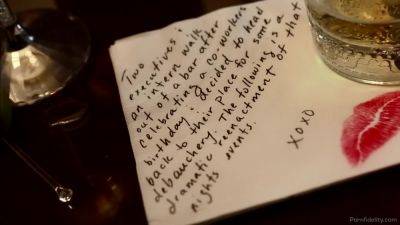 Two
executives &
an intern walk
out of a bar after
celebrating a co-workers
birthday & decided to head
back to their place for some
debauchery. The following is a
dramatic reenactment of that
nights events:
XOXO
Pornfidelity.com